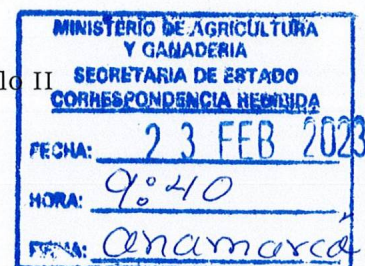 MINISTERIO DE AGRICULTURA
Y GANADERIA
lo II
SECRETARIA DE ESTADO
CORRESPONDENCIA RECIBIDA
FECHA: 23 FEB 2023
HORA: 9:40
FIRMA: